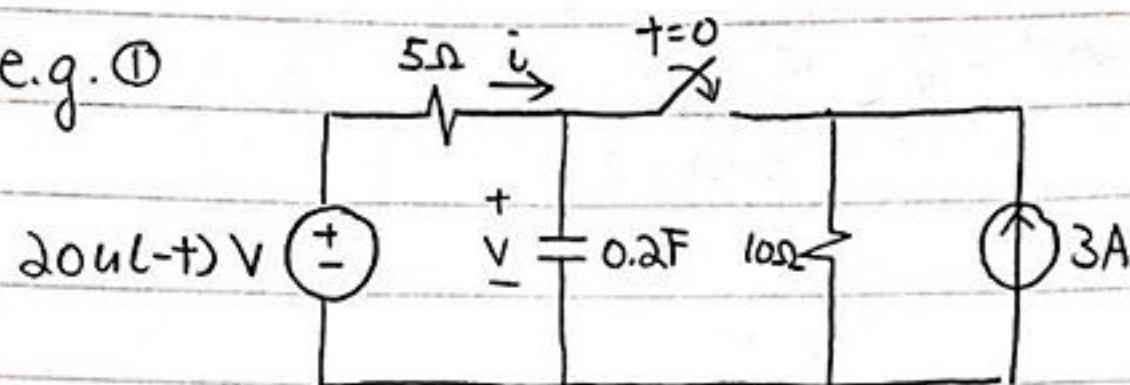 e.g. ①
5Ω i t=0
20u(-t) V + - + V - 0.2F 10Ω 3A